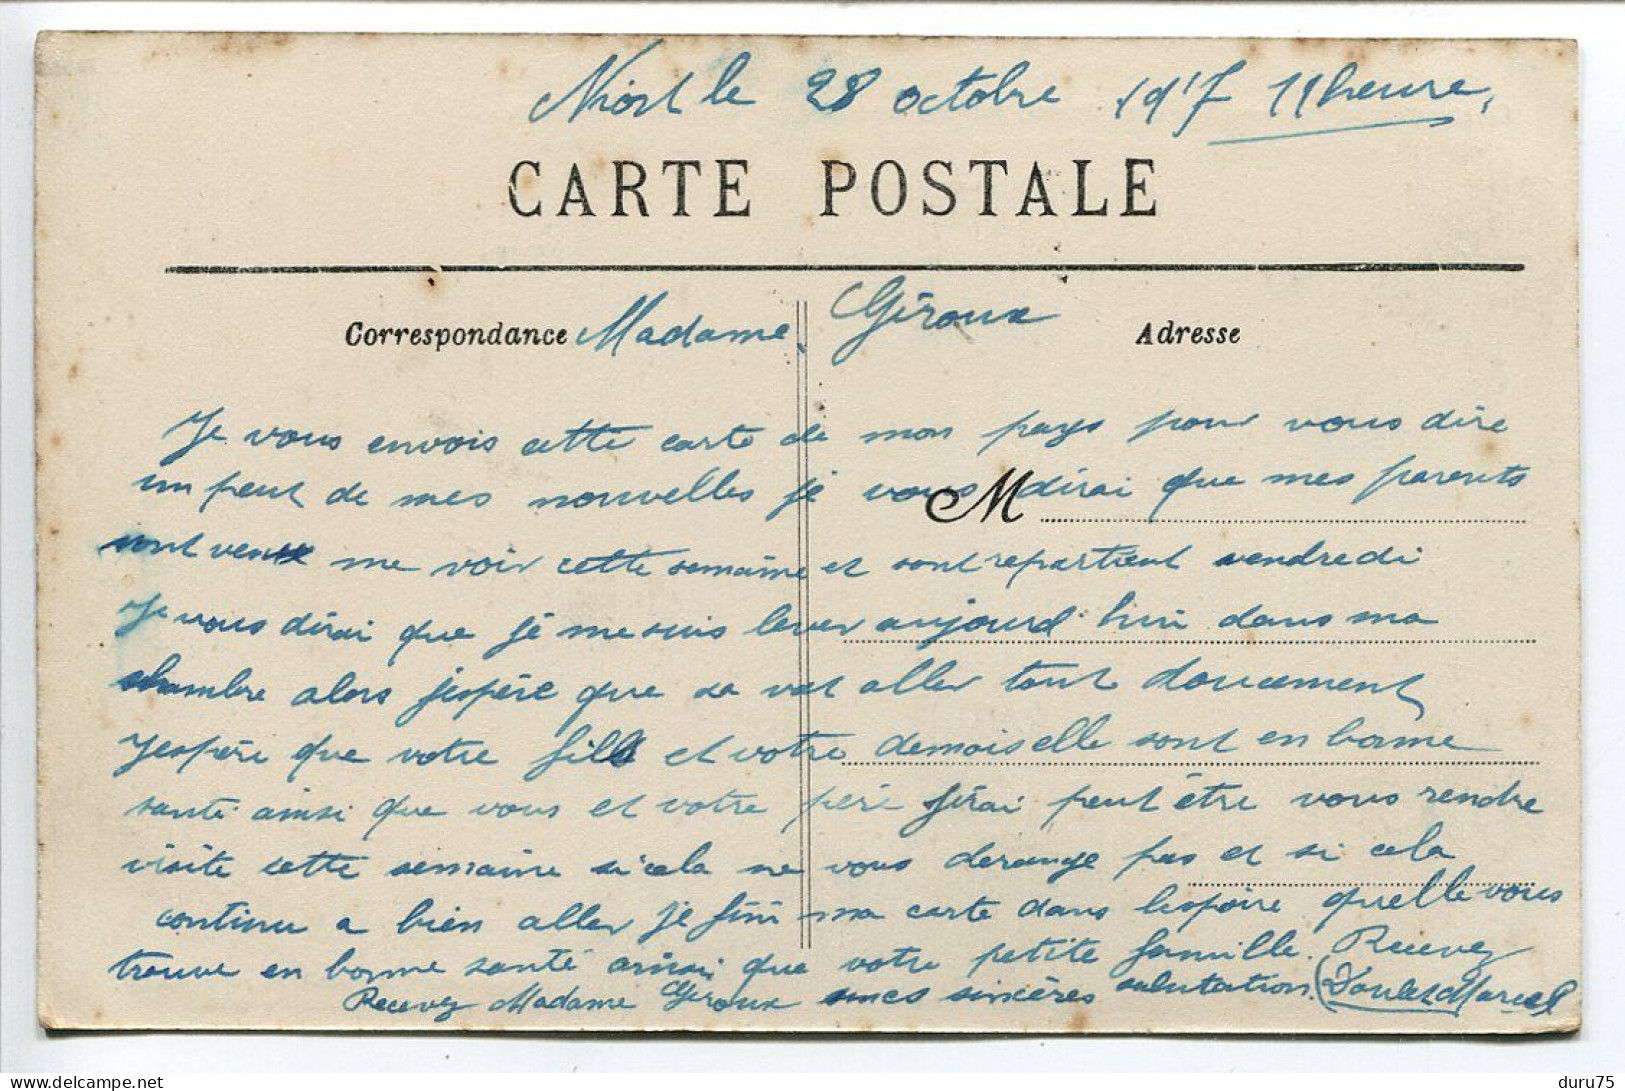 Niort le 28 octobre 1917 11 heure,
CARTE POSTALE
Correspondance Madame Géroux Adresse
Je vous envois cette carte de mon pays pour vous dire
un peut de mes nouvelles je vous M dirai que mes parents
sont venux me voir cette semaine et sont repartient vendredi
Je vous dirai que je me suis lever aujourd hui dans ma
chambre alors jespère que sa vat aller tout doucement
Jespère que votre fille et votre demoiselle sont en bonne
santé ainsi que vous et votre père jirai peut être vous rendre
visite cette semaine si cela ne vous derange pas et si cela
continu a bien aller je fini ma carte dans lespoire quelle vous
trouve en bonne santé ainsi que votre petite famille. Recevez
Recevez Madame Géroux mes sincères salutation. Marcel
delcampe.net
duru75